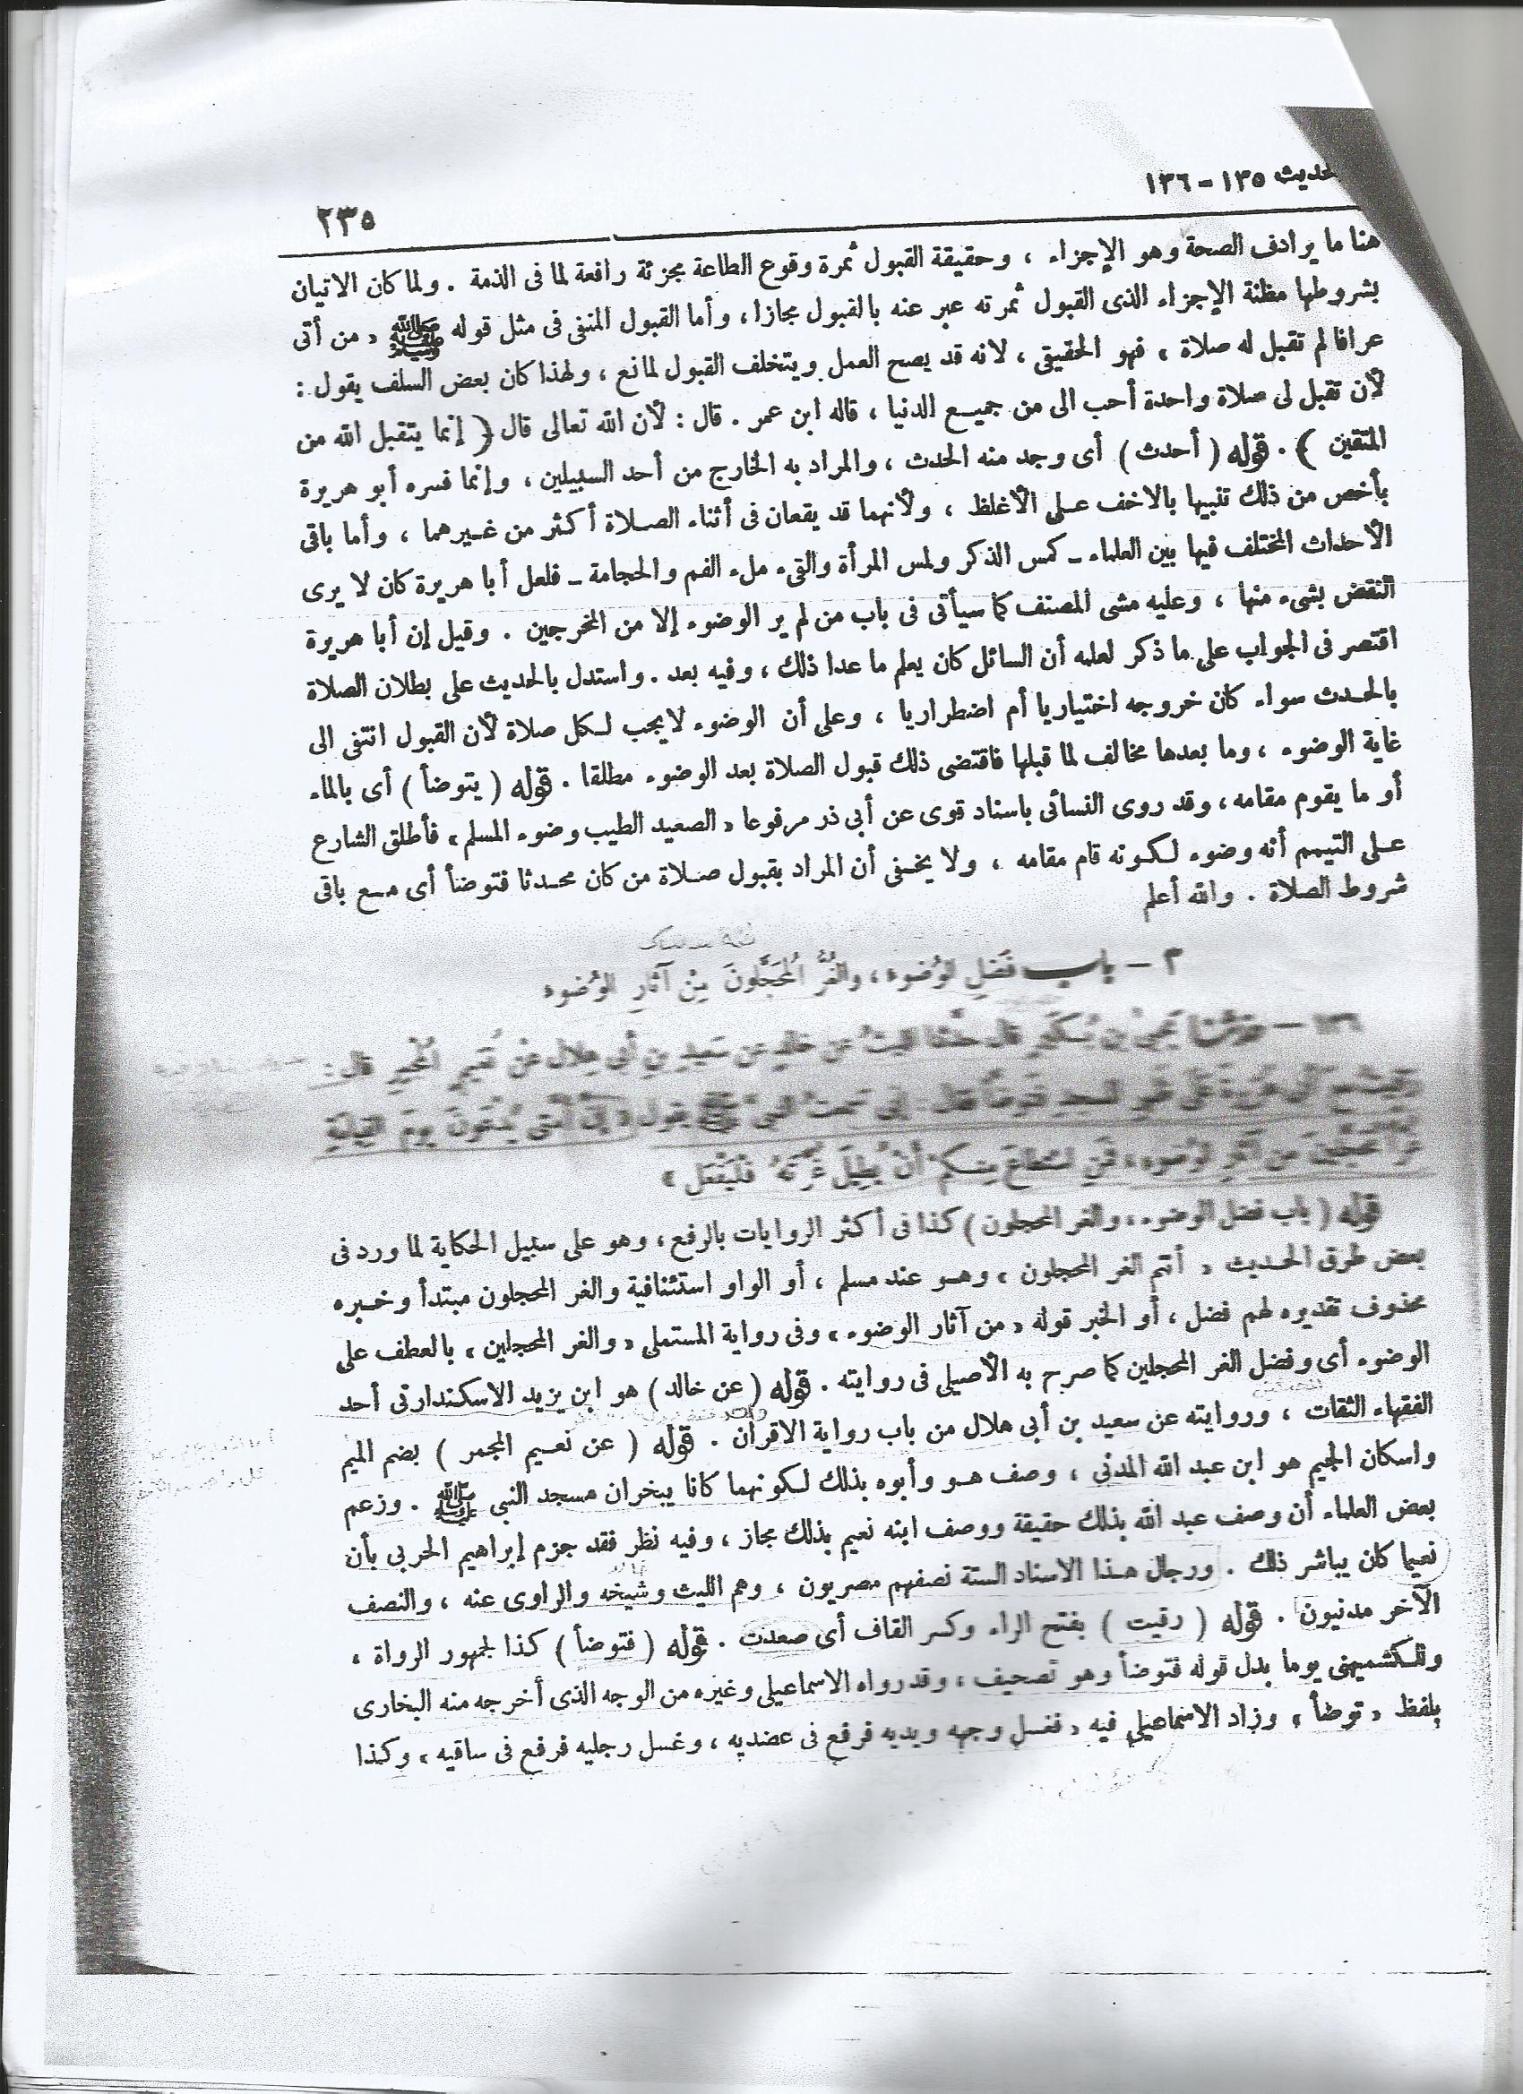 الحديث ١٣٥ – ١٣٦
٢٣٥
هنا ما يرادف الصحة وهو الإجزاء ، وحقيقة القبول ثمرة وقوع الطاعة مجزئة رافعة لما فى الذمة . ولما كان الاتيان
بشروطها مظنة الإجزاء الذى القبول ثمرته عبر عنه بالقبول مجازا ، وأما القبول المنفى فى مثل قوله ﷺ « من أتى
عرافا لم تقبل له صلاة » فهو الحقيقى ، لانه قد يصح العمل ويتخلف القبول لمانع ، ولهذا كان بعض السلف يقول :
لأن تقبل لى صلاة واحدة أحب الى من جميع الدنيا ، قاله ابن عمر . قال : لأن الله تعالى قال ﴿ إنما يتقبل الله من
المتقين ﴾ . قوله ( أحدث ) أى وجد منه الحدث ، والمراد به الخارج من أحد السبيلين ، وإنما فسره أبو هريرة
بأخص من ذلك تنبيها بالاخف على الأغلظ ، ولأنهما قد يقعان فى أثناء الصلاة أكثر من غيرهما ، وأما باقى
الأحداث المختلف فيها بين العلماء – كمس الذكر ولمس المرأة والقىء ملء الفم والحجامة – فلعل أبا هريرة كان لا يرى
النقض بشىء منها ، وعليه مشى المصنف كما سيأتى فى باب من لم ير الوضوء إلا من المخرجين . وقيل إن أبا هريرة
اقتصر فى الجواب على ما ذكر لعلمه أن السائل كان يعلم ما عدا ذلك ، وفيه بعد . واستدل بالحديث على بطلان الصلاة
بالحدث سواء كان خروجه اختياريا أم اضطراريا ، وعلى أن الوضوء لا يجب لكل صلاة لأن القبول انتفى الى
غاية الوضوء ، وما بعدها مخالف لما قبلها فاقتضى ذلك قبول الصلاة بعد الوضوء مطلقا . قوله ( يتوضأ ) أى بالماء
أو ما يقوم مقامه ، وقد روى النسائى باسناد قوى عن أبى ذر مرفوعا « الصعيد الطيب وضوء المسلم » فأطلق الشارع
على التيمم أنه وضوء لكونه قام مقامه ، ولا يخفى أن المراد بقبول صلاة من كان محدثا فتوضأ أى مع باقى
شروط الصلاة . والله أعلم
٣ – باب فَضلِ الوُضوء ، والغُرُّ المُحَجَّلونَ مِنْ آثارِ الوُضوء
١٣٦ – حدثنا يَحيىٰ بن بُكَيرٍ قال حدَّثنا الليثُ عن خالدٍ عن سَعيدِ بنِ أبي هِلال عن نُعَيمٍ المُجْمِرِ قال :
رَقِيتُ مع أبى هُريرةَ عَلَى ظَهرِ المسجدِ فتَوضَّأ فقال : إنى سَمعتُ النبىَّ ﷺ يقول « إنَّ أُمَّتى يُدْعَونَ يومَ القيامةِ
غُرًّا مُحجَّلينَ من آثارِ الوُضوء ، فمَنِ استَطاعَ مِنـكمْ أنْ يُطِيلَ غُرَّتَهُ فلْيَفْعَل »
قوله ( باب فضل الوضوء ، والغر المحجلون ) كذا فى أكثر الروايات بالرفع ، وهو على سبيل الحكاية لما ورد فى
بعض طرق الحديث « أنتم الغر المحجلون » وهو عند مسلم ، أو الواو استئنافية والغر المحجلون مبتدأ وخبره
محذوف تقديره لهم فضل ، أو الخبر قوله « من آثار الوضوء » وفى رواية المستملى « والغر المحجلين » بالعطف على
الوضوء أى وفضل الغر المحجلين كما صرح به الأصيلى فى روايته . قوله ( عن خالد ) هو ابن يزيد الاسكندارنى أحد
الفقهاء الثقات ، وروايته عن سعيد بن أبى هلال من باب رواية الاقران . قوله ( عن نعيم المجمر ) بضم الميم
واسكان الجيم هو ابن عبد الله المدنى ، وصف هو وأبوه بذلك لكونهما كانا يبخران مسجد النبى ﷺ . وزعم
بعض العلماء أن وصف عبد الله بذلك حقيقة ووصف ابنه نعيم بذلك مجاز ، وفيه نظر فقد جزم إبراهيم الحربى بأن
نعيما كان يباشر ذلك . ورجال هذا الاسناد الستة نصفهم مصريون ، وهم الليث وشيخه والراوى عنه ، والنصف
الآخر مدنيون . قوله ( رقيت ) بفتح الراء وكسر القاف أى صعدت . قوله ( فتوضأ ) كذا لجمهور الرواة ،
وللكشميهنى يوما بدل قوله فتوضأ وهو تصحيف ، وقد رواه الاسماعيلى وغيره من الوجه الذى أخرجه منه البخارى
بلفظ « توضأ » وزاد الاسماعيلى فيه « فغسل وجهه ويديه فرفع فى عضديه ، وغسل رجليه فرفع فى ساقيه » وكذا